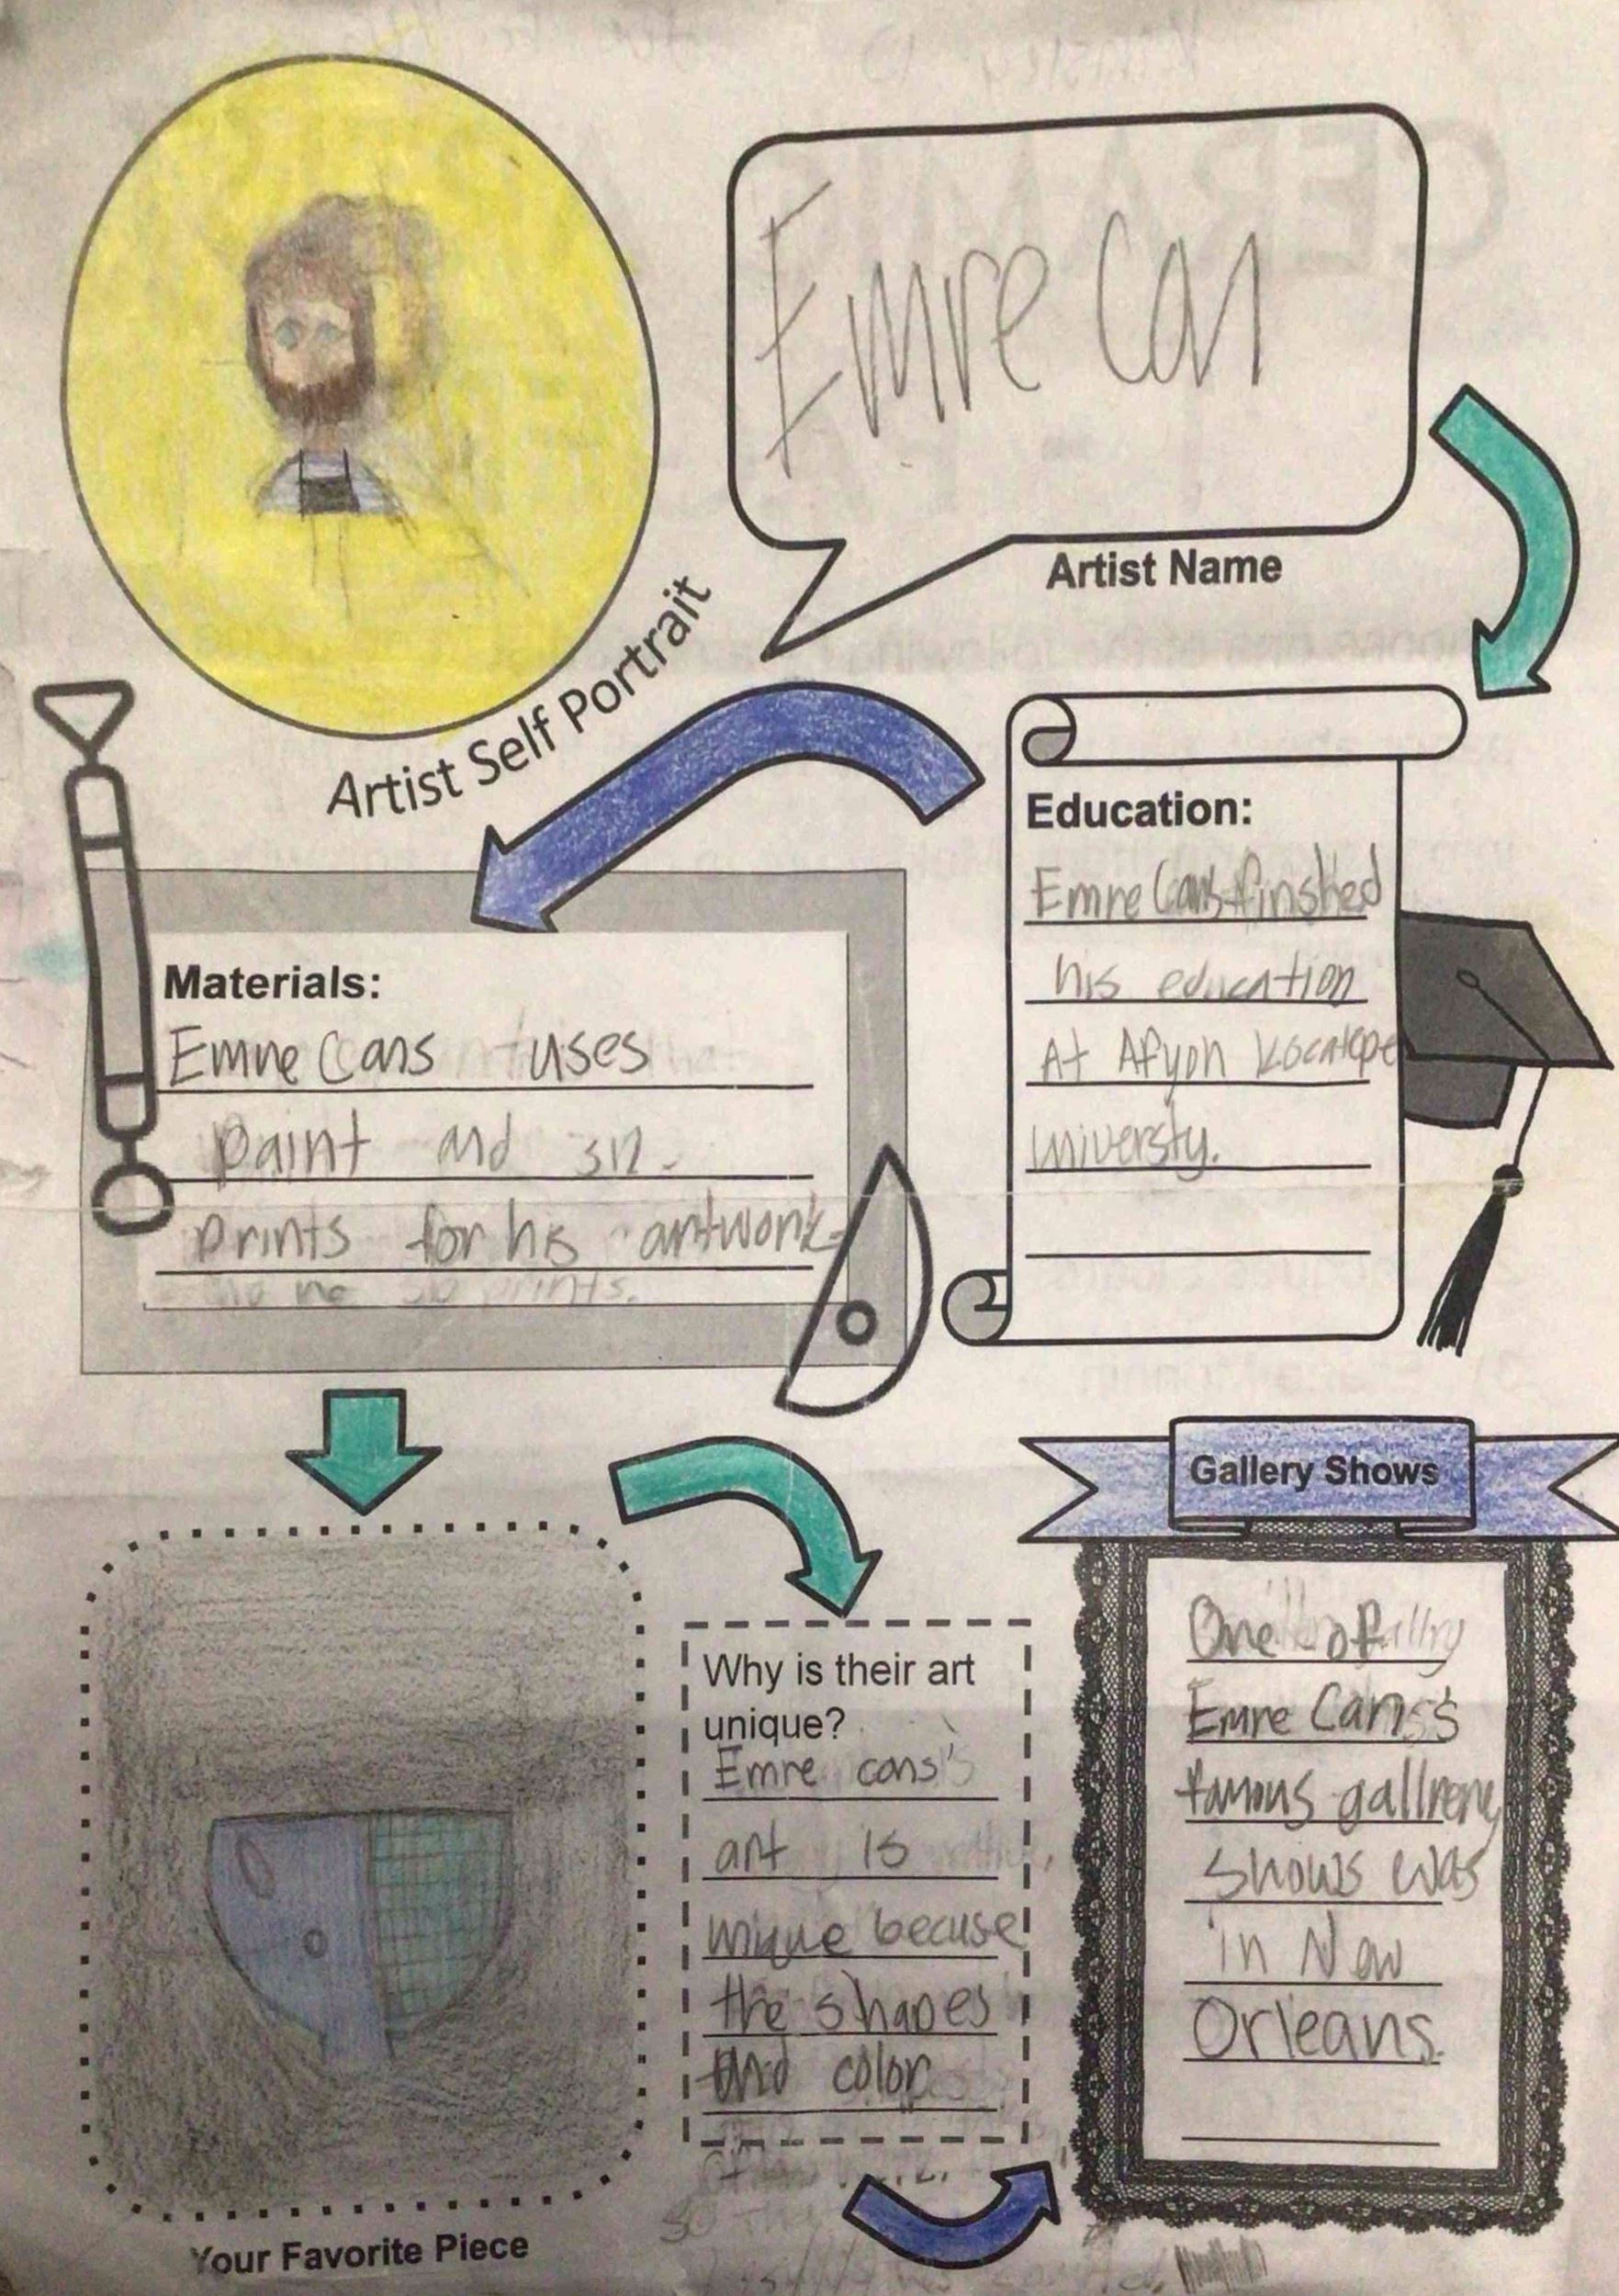 Emre Can
Artist Name
Artist Self Portrait
Education:
Emre Cans finshed
his education
At Afyon Kocatepe
Universty.
Materials:
Emre Cans uses
paint and
prints for his artwork
prints.
Gallery Shows
One of
Emre Cans's
famous gallrery
shows was
in New
Orleans.
Why is their art
unique?
Emre cans's
art is
unique becuse
the shapes
and color
Your Favorite Piece